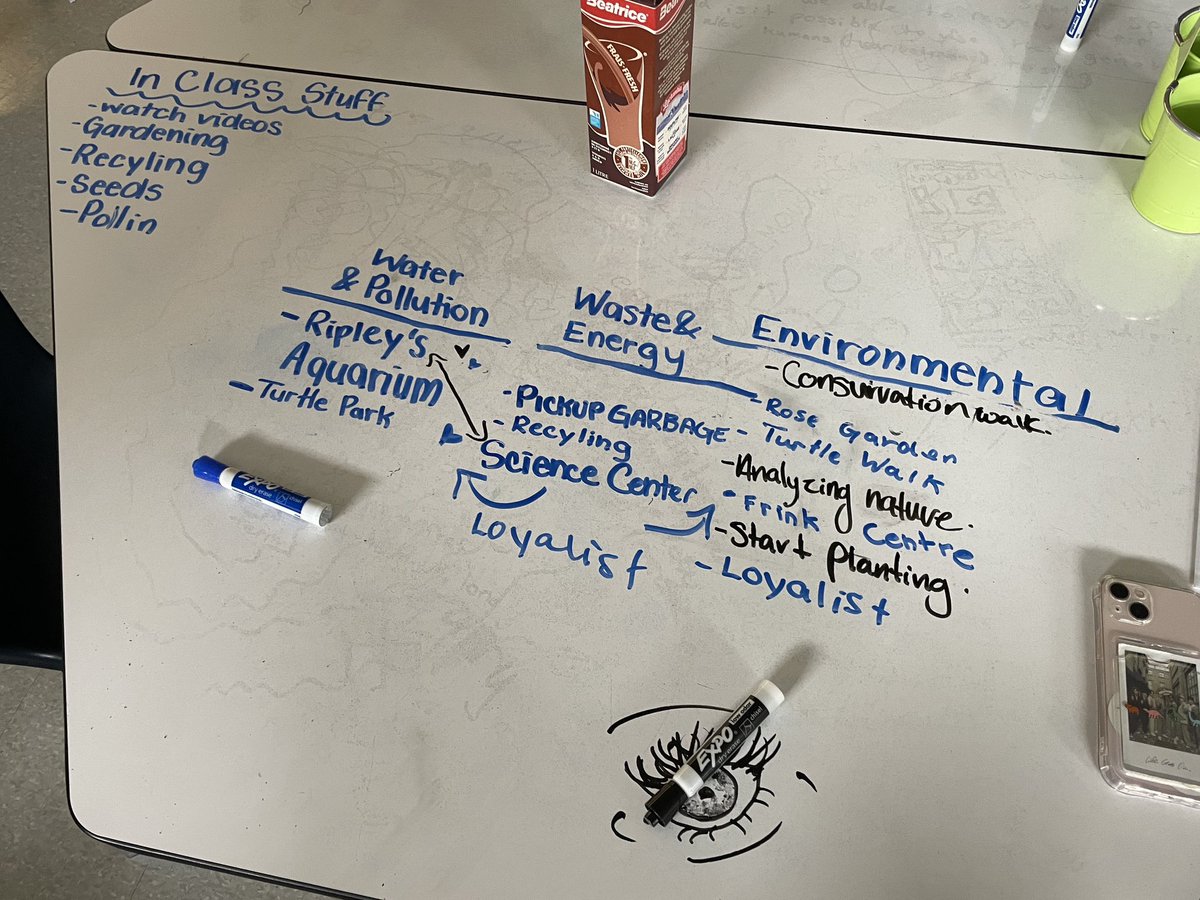 In Class Stuff
-watch videos
-Gardening
-Recyling
-Seeds
-Pollin
Water
& Pollution
-Ripley's
Aquarium
-Turtle Park
Waste&
Energy
-PICKUP GARBAGE
-Recyling
Science Center
Loyalist
Environmental
-Consurvation walk.
-Rose Garden
-Turtle Walk
-Analyzing nature.
-Frink Centre
-Start planting.
-Loyalist
Beatrice
FRAIS•FRESH
1 LITRE
EXPO
dry erase
chisel
EXPO
low odor
chisel